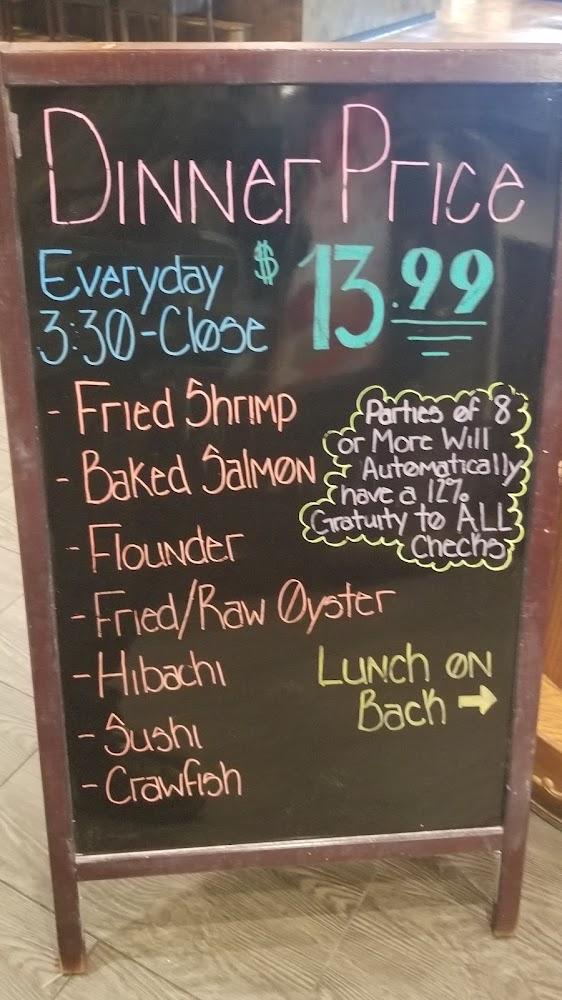 Dinner Price
Everyday $ 13.99
3:30-Close
- Fried Shrimp
- Baked Salmon
- Flounder
- Fried/Raw Oyster
- Hibachi
- Sushi
- Crawfish
Parties of 8
or More Will
Automatically
have a 12%
Gratuity to ALL
Checks
Lunch on
Back →